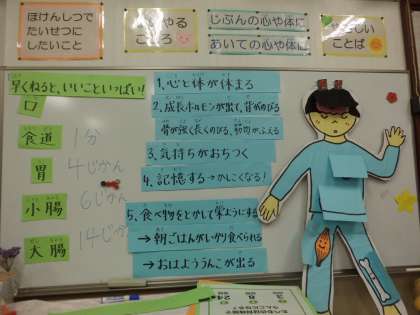 ほけんしつで
たいせつに
したいこと
やる
こころ
じぶんの心や体に
あいての心や体に
しい
ことば
早くねると、いいこといっぱい!
口
食道 1分
胃 4じかん
小腸 6じかん
大腸 14じかん
1.心と体が休まる
2.成長ホルモンが出て、骨がのびる
骨が強く長くのびる、筋肉がふえる
3.気持ちがおちつく
4.記憶する→かしこくなる!
5.食べ物をとかして栄ようにする
→朝ごはんがしっかり食べられる
→おはよううんこが出る
3 8 24